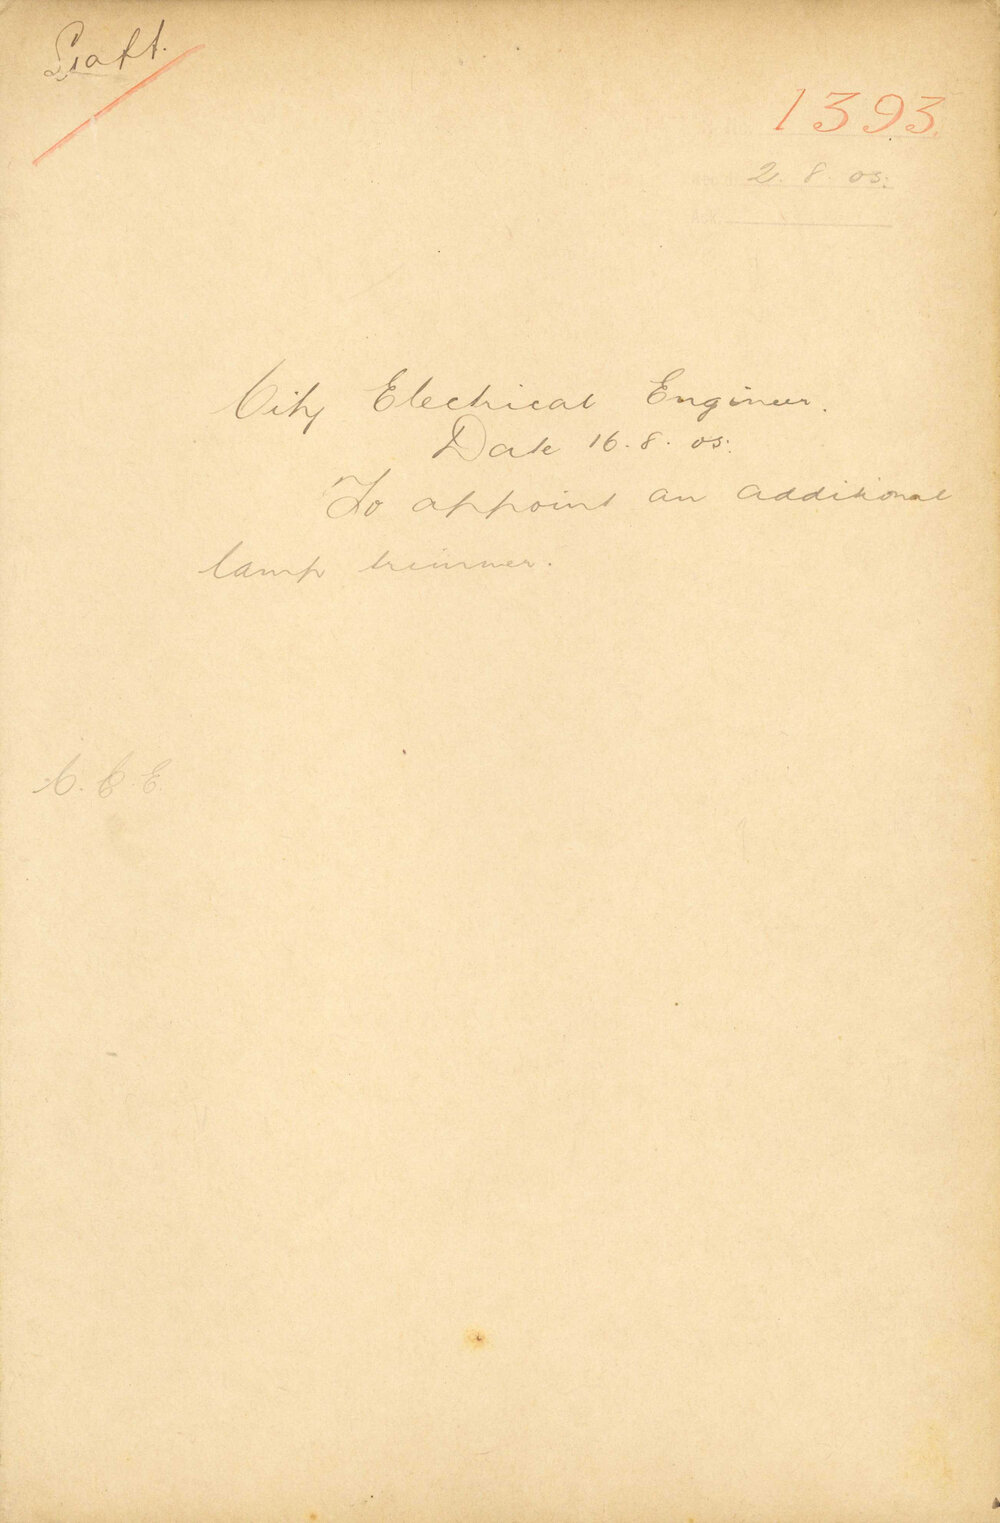 Staff.
1393
2. 8. 05.
City Electrical Engineer.
Date 16. 8. 05.
To appoint an additional
lamp trimmer.
C. C. E.